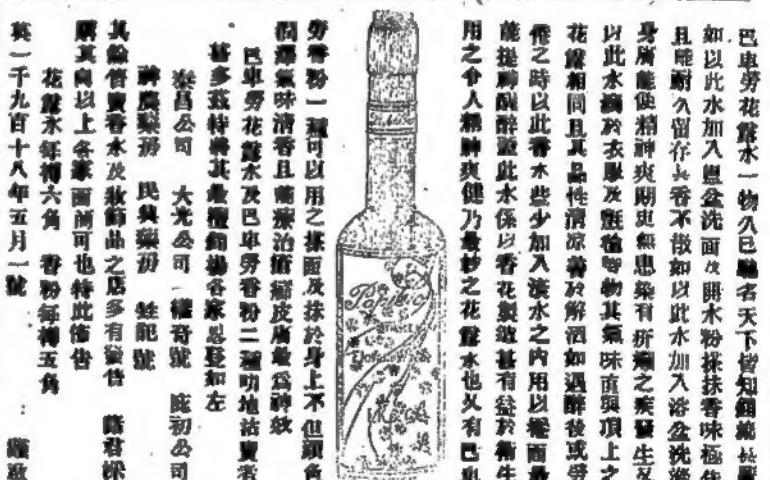 巴車勞花露水一物久已馳名天下皆知
如以此水加入面盆洗面及開水粉搽抹香味極佳
且能耐久留存其香不散如以此水加入浴盆洗
身屬能使精神爽朗更無患染有所之疾發生又
以此水灑於衣服及氈等物其氣味直與頂上之
花露相同且其品性清凉善於解酒如遇醉後或勞
倦之時以此香水些少加入淡水之內用以擦面最
能提神醒醉蓋此水係以香花製做甚有益於衛生
用之令人精神爽健乃最妙之花露水也又有巴車
Pafuero
勞香粉一種可以用之搽面及抹於身上不但顏色
潤澤氣味清香且能療治皮膚最為神效
巴車勞花露水及巴車勞香粉二種叻地沽賣者
甚多茲特將其最擅銷場各家恩登如左
泰昌公司 大光公司 權奇號 廣初公司
神農藥房 民興藥房 號
其餘售賣香水及妝飾品之店多有發售 諸君採
購其向以上各家面商可也特此佈告
花露水每樽六角 香粉每樽五角
英一千九百十八年五月一號 謹啟